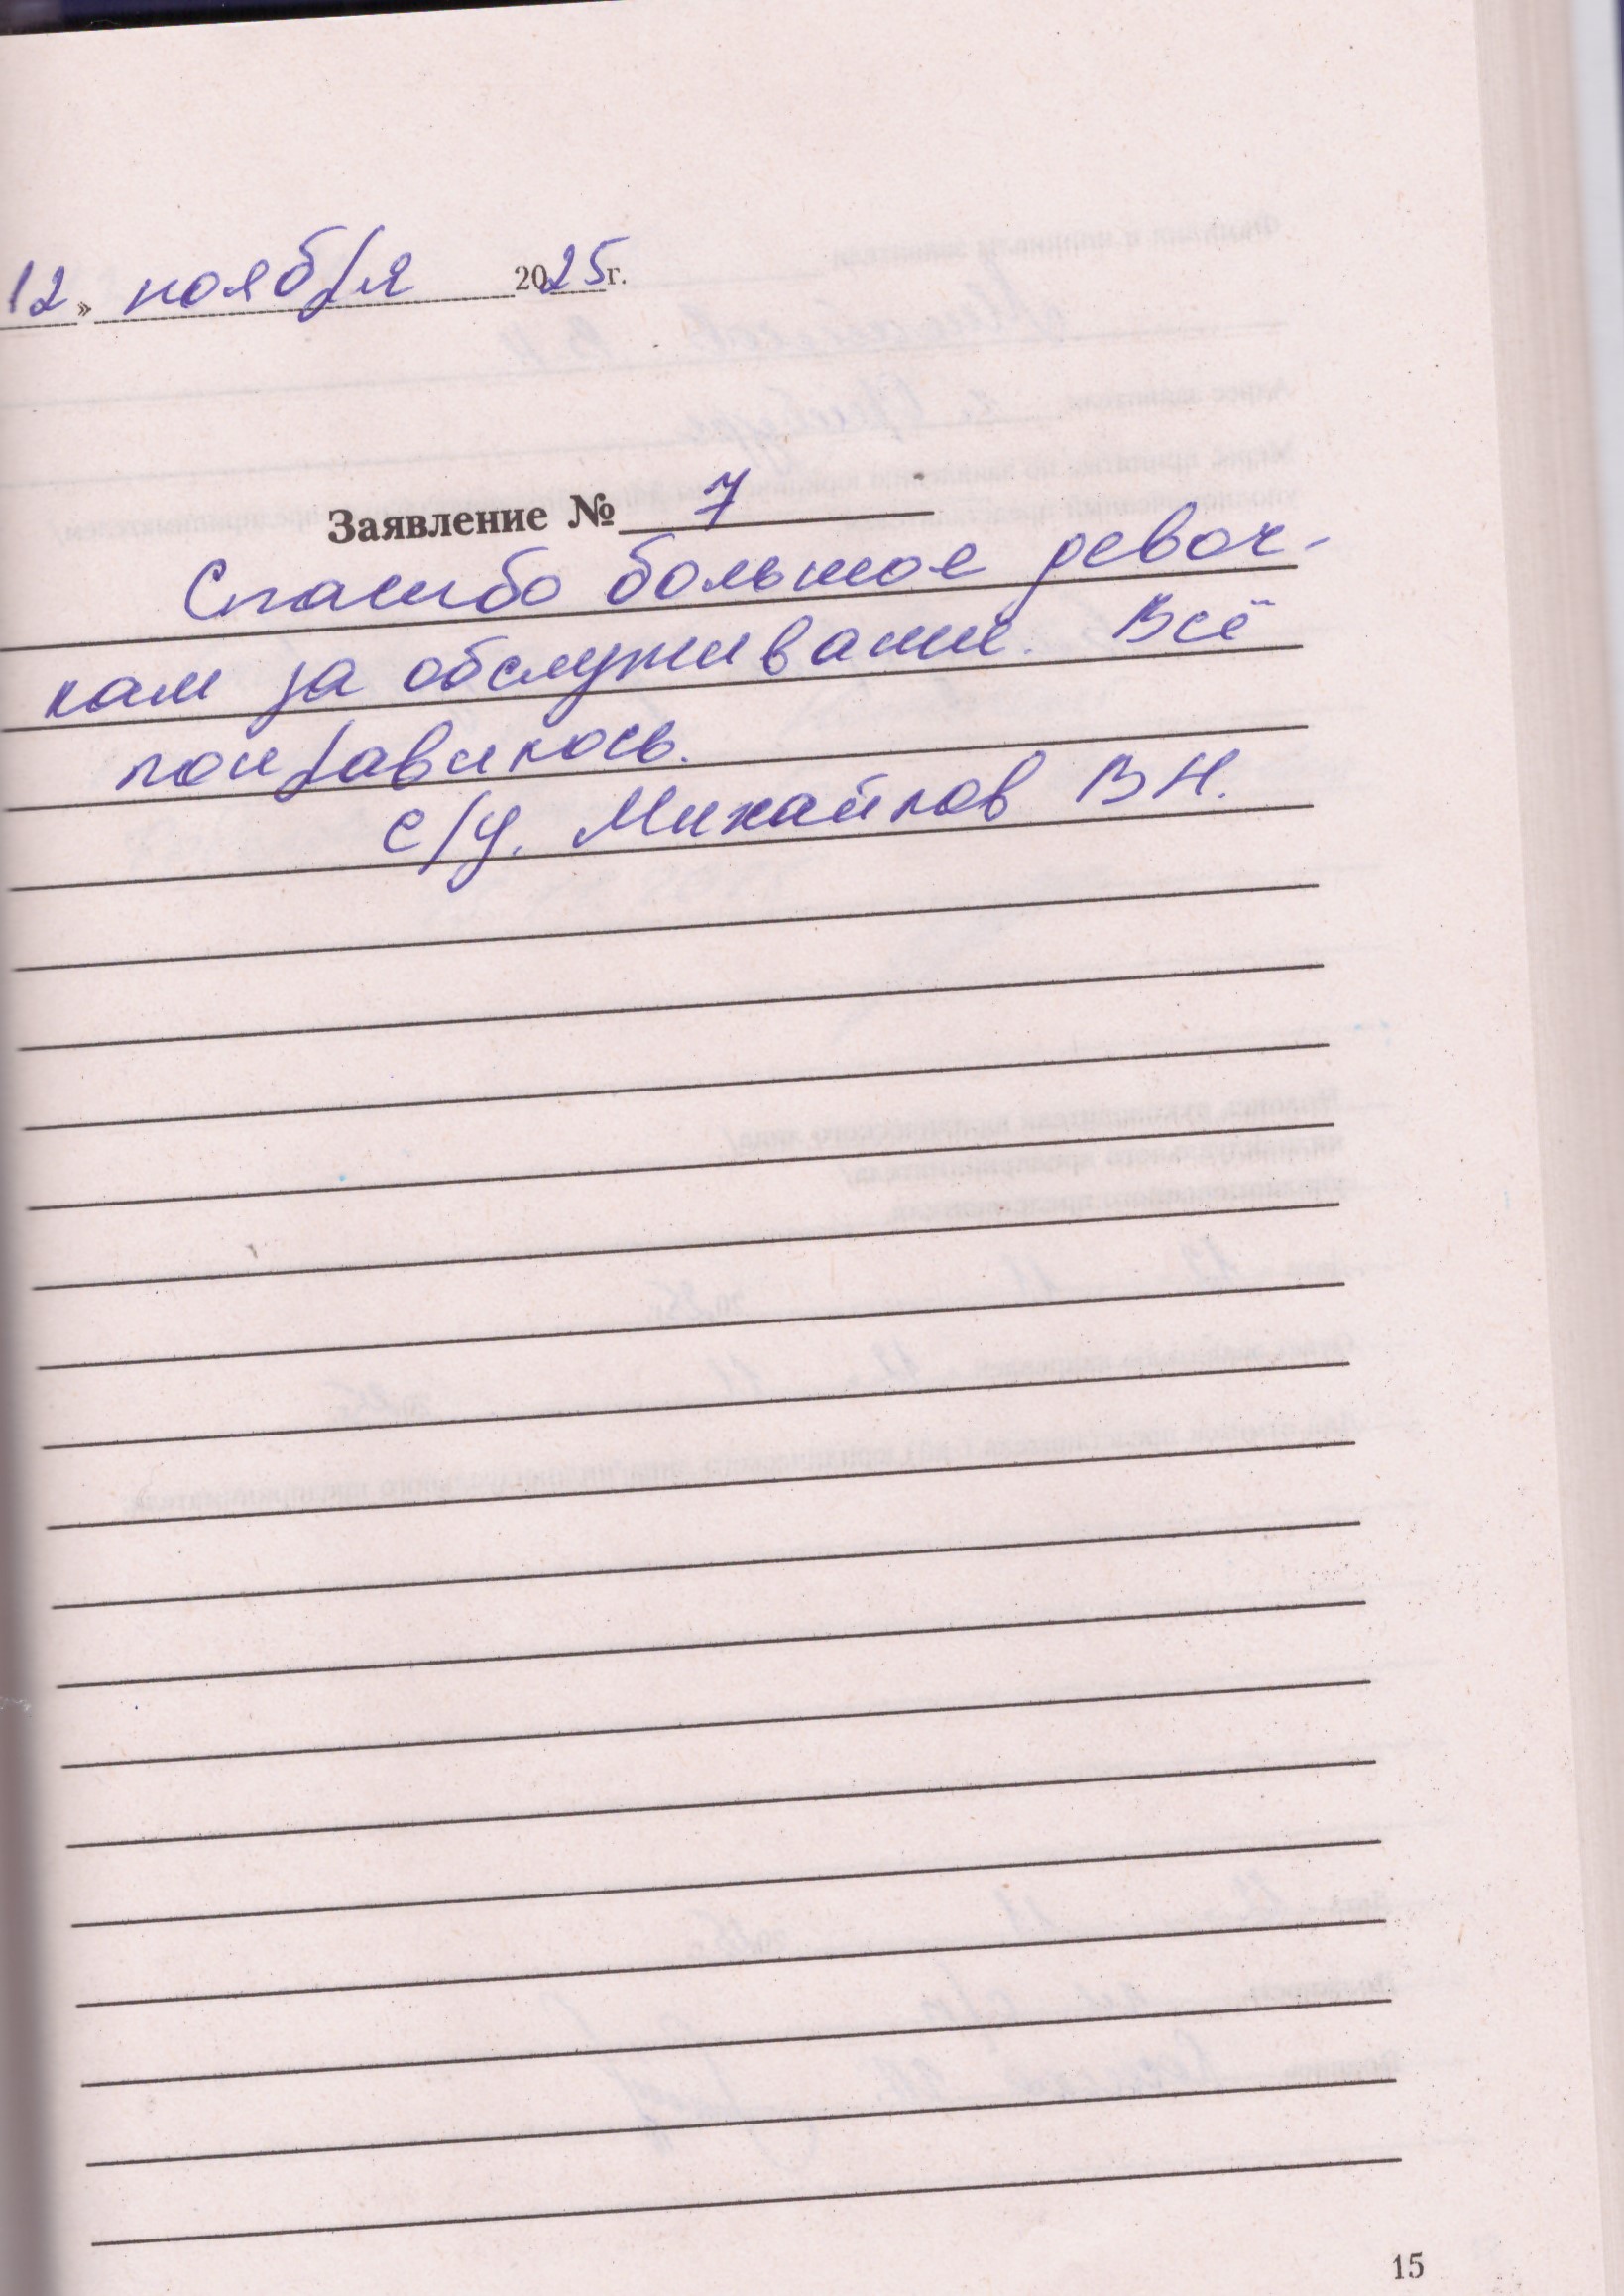 12 » ноября 2025 г.
Заявление № 7
Спасибо большое девоч-
кам за обслуживание. Всё
понравилось.
с/у. Михайлов В Н.
15